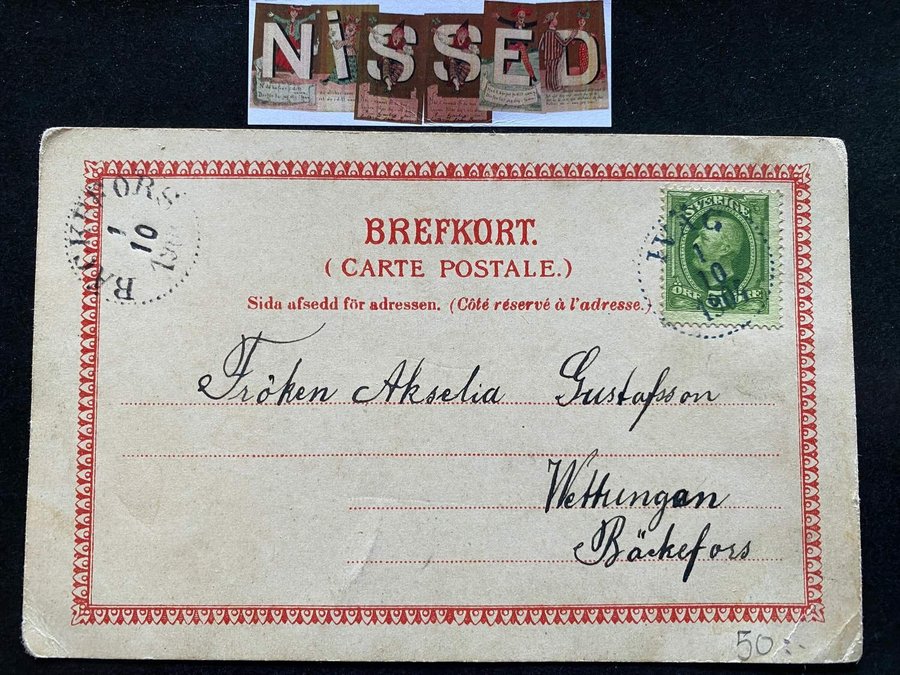 NISSED
BREFKORT.
( CARTE POSTALE.)
Sida afsedd för adressen. (Côté réservé à l'adresse.)
BÄCKEFORS
1
10
SVERIGE
1
10
ÖRE
Fröken Akselia Gustafsson
Wettungan
Bäckefors
50:-